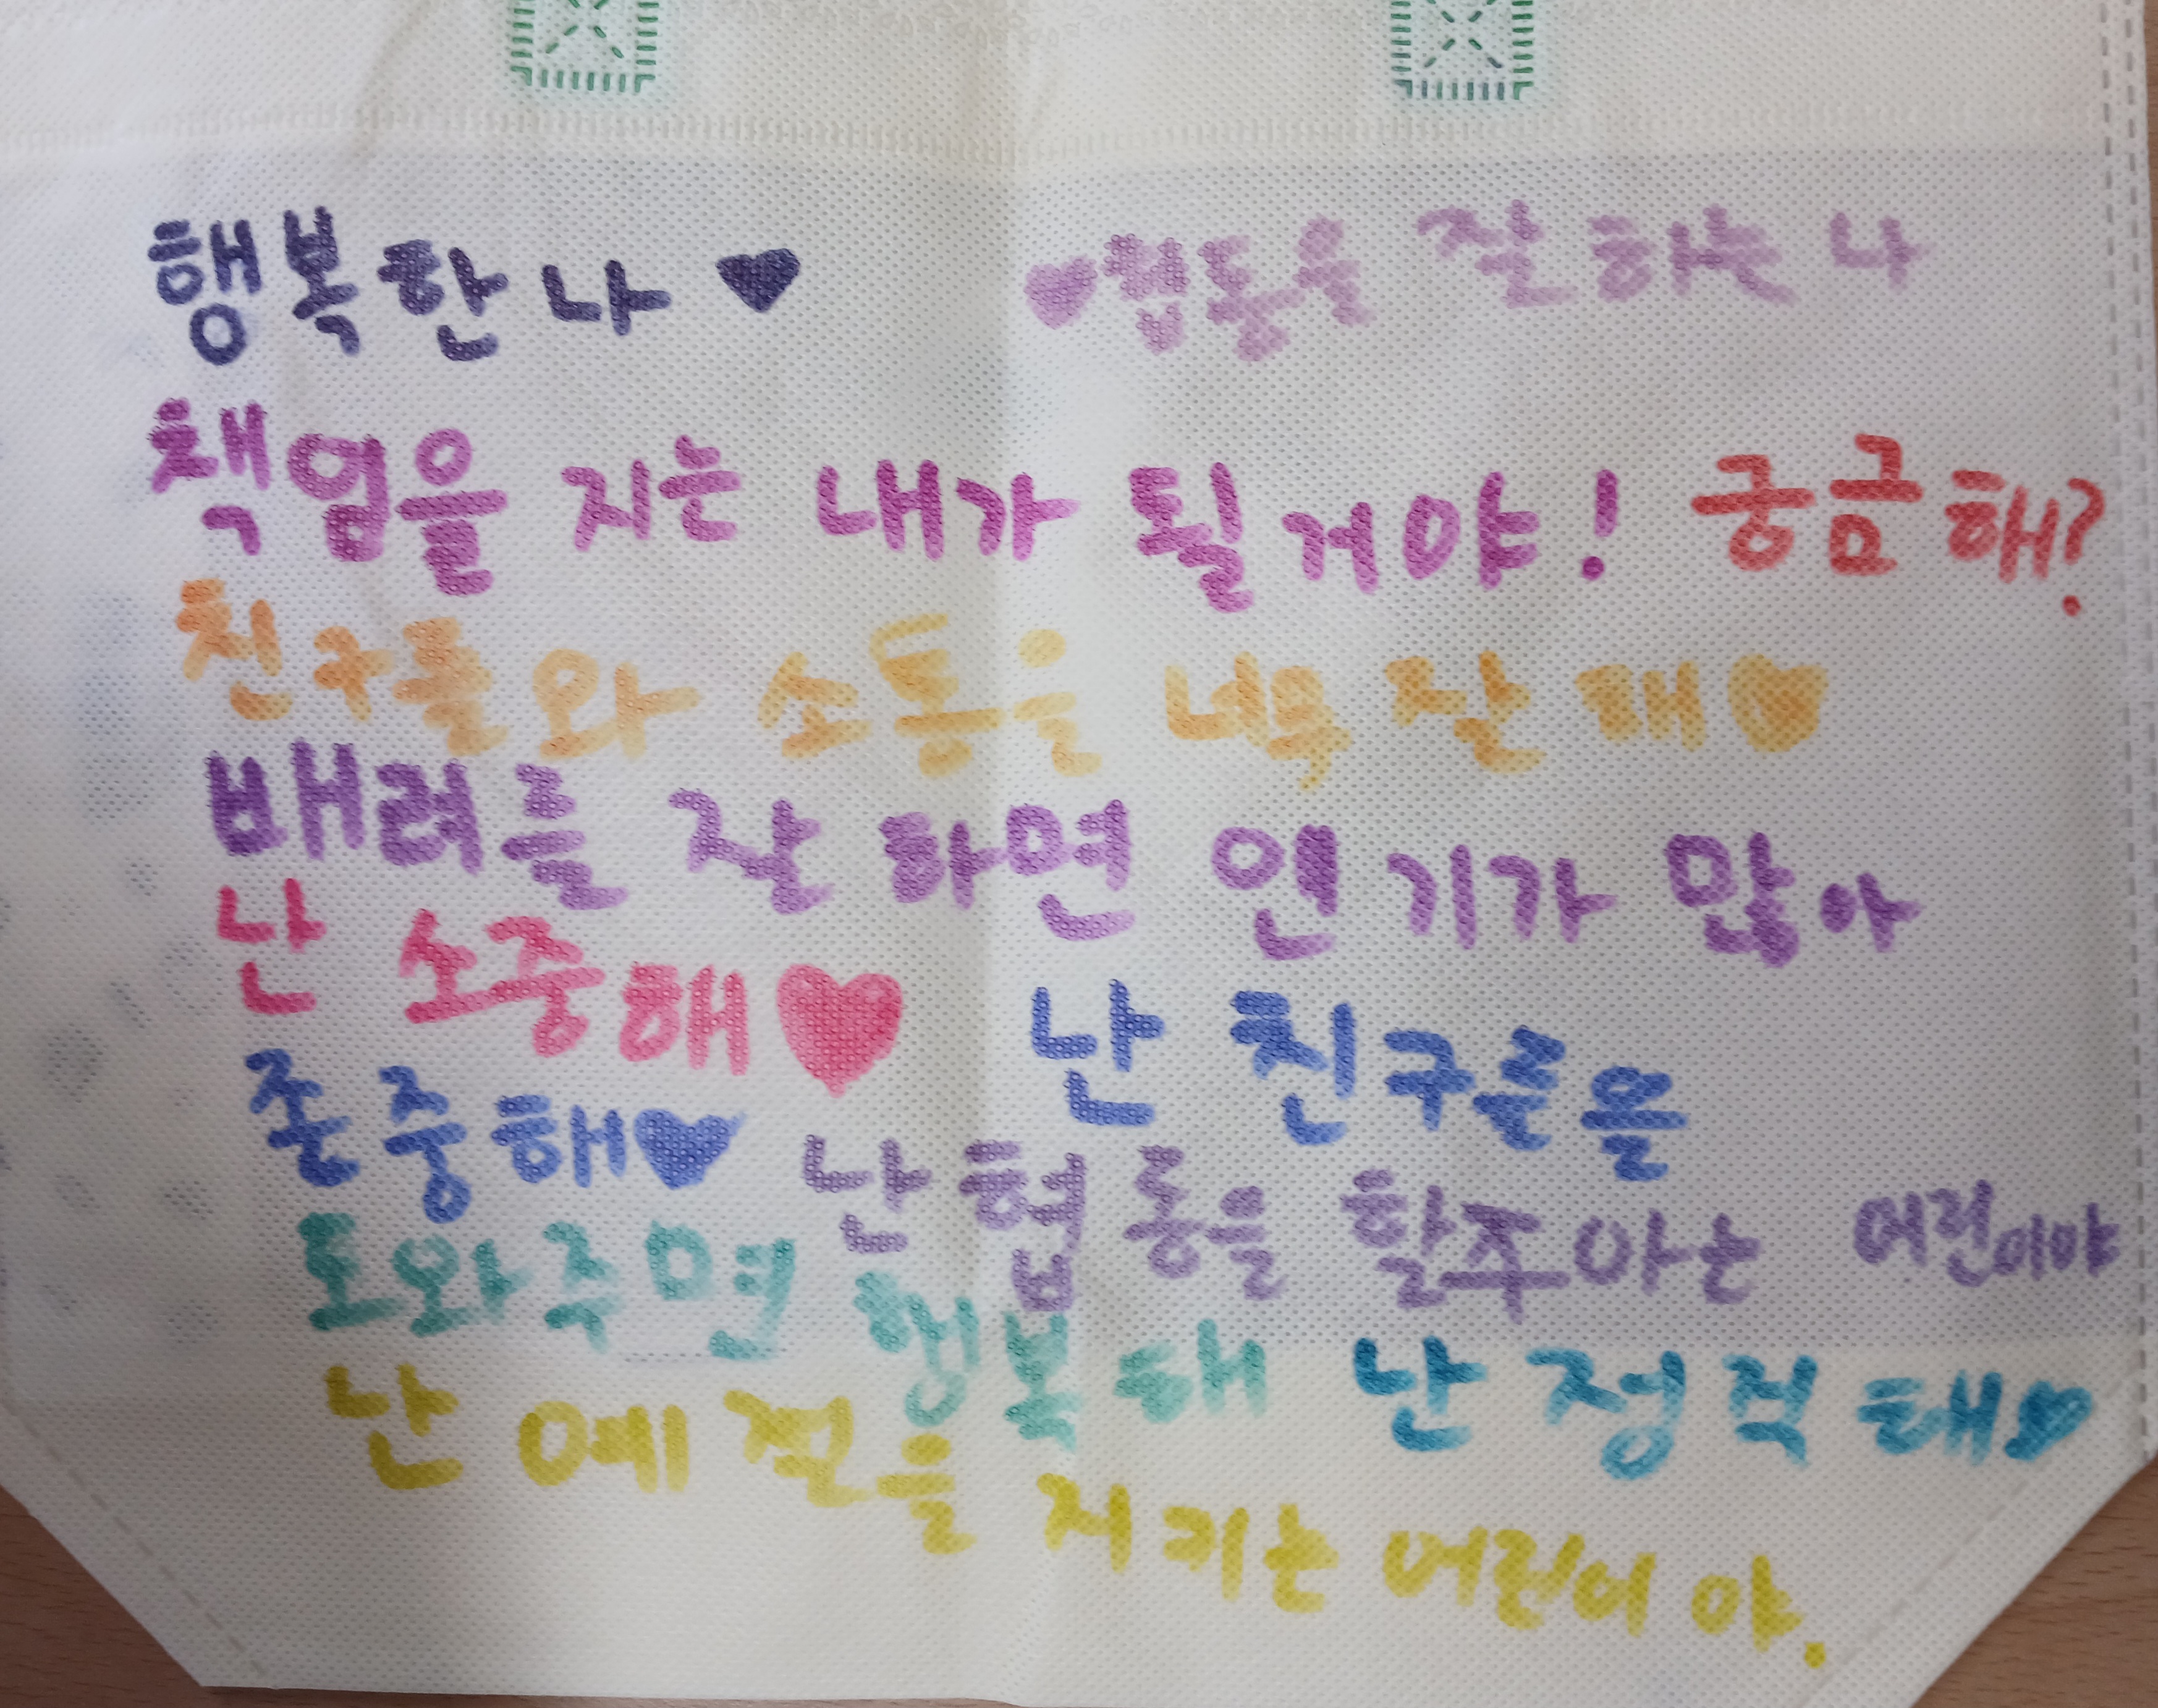 행복한 나 ♥ ♥협동을 잘 하는 나
책업을 지는 내가 될거야! 궁금해?
친구들와 소통을 너무 잘 해♥
배려를 잘 하면 인기가 많아
난 소중해♥ 난 친구들을
존중해♥ 난 협동을 할주아는 어린이야
도와주면 행복해 난 정직해♥
난 예절를 지키는 어린이야.